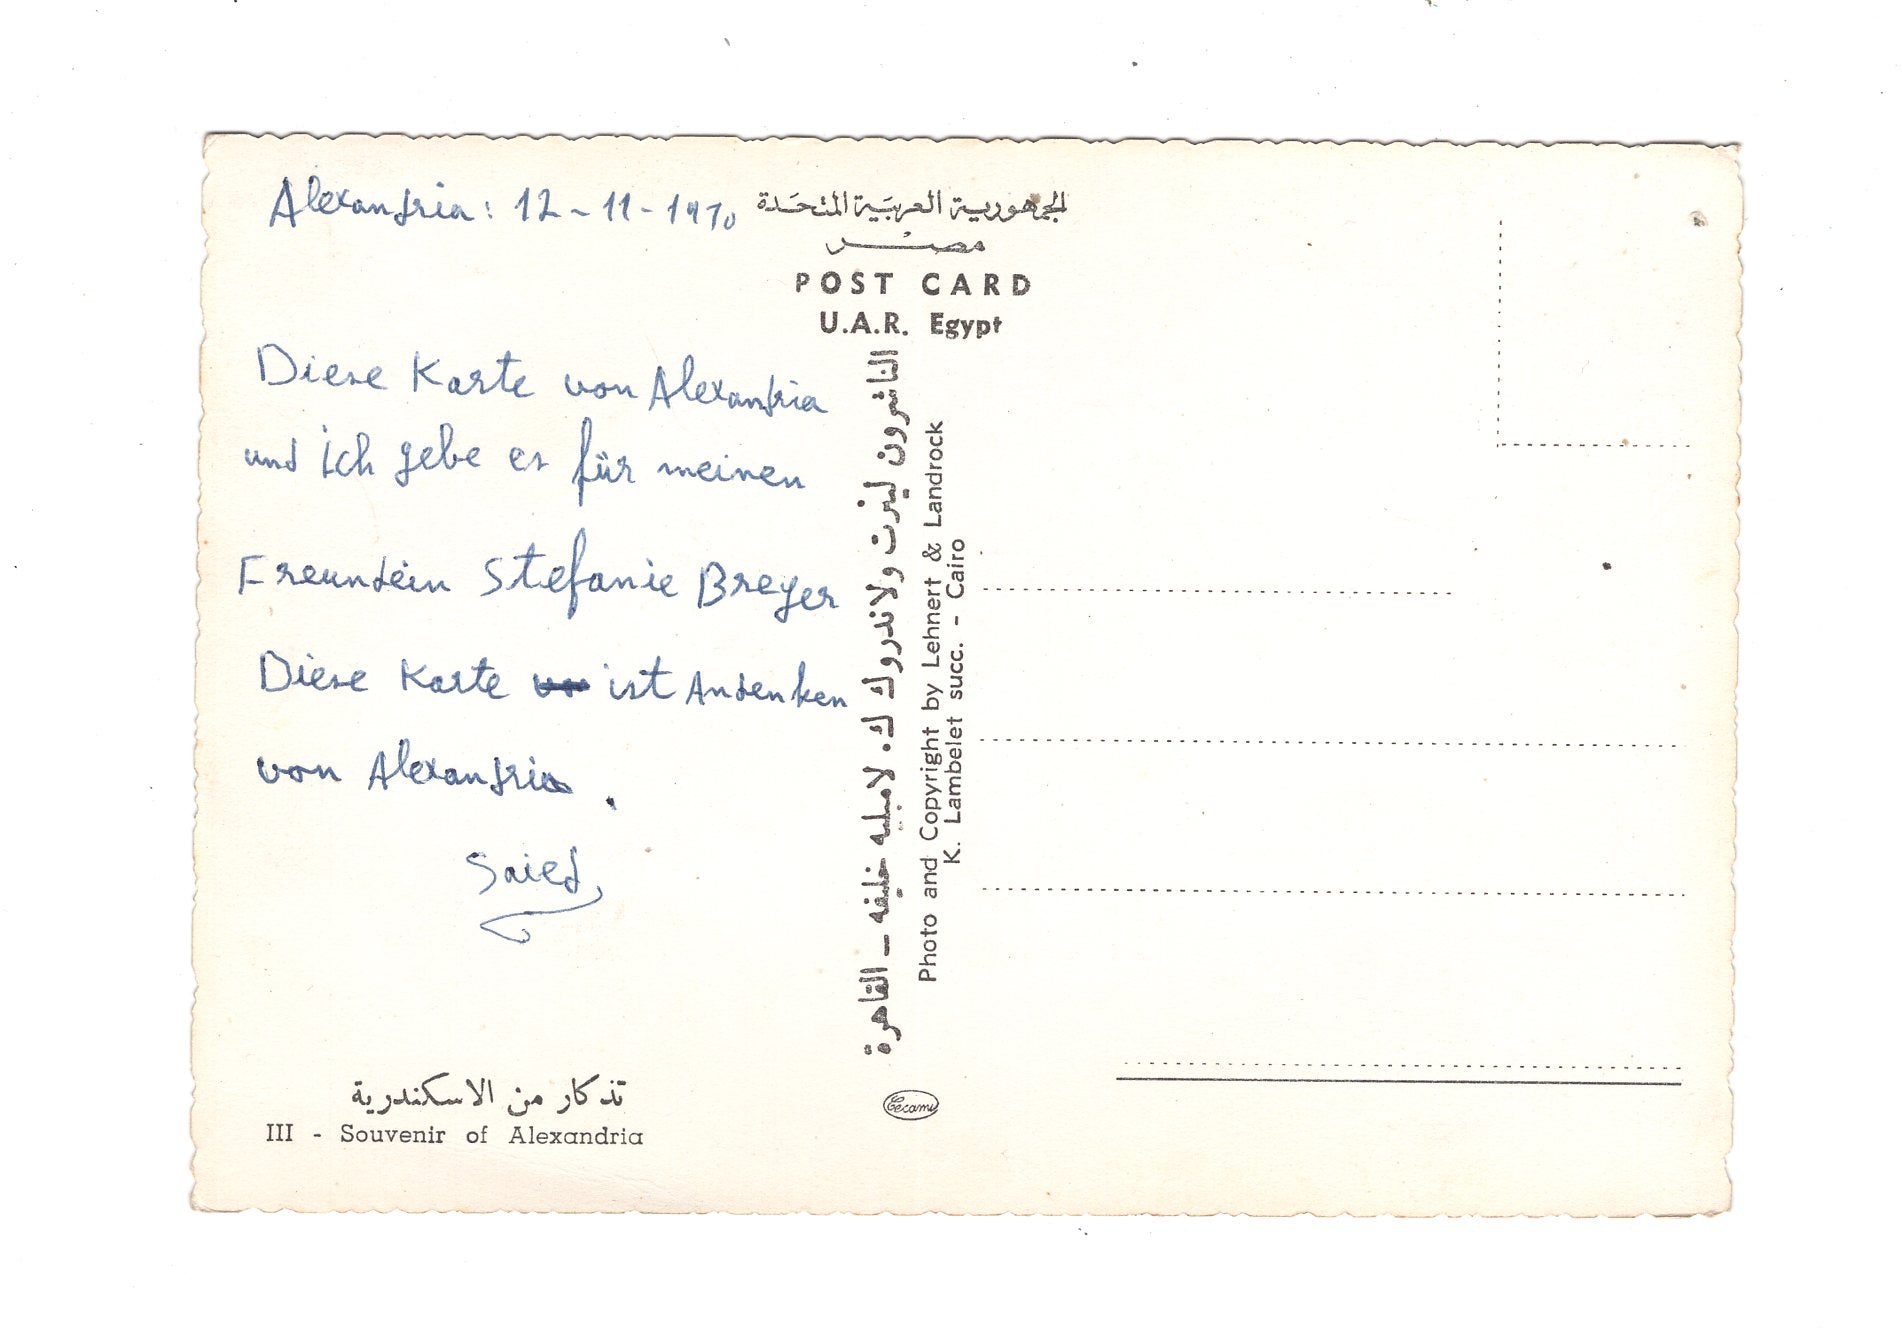 Alexandria: 12-11-1970
Diese Karte von Alexandria
und ich gebe es für meinen
Freundein Stefanie Breyer
Diese Karte ist Andenken
von Alexandria.
Saied
تذكار من الاسكندرية
III - Souvenir of Alexandria
الجمهورية العربية المتحدة
مصر
POST CARD
U.A.R. Egypt
الناشرون لينرت ولاندروك ك. لامبليه خليفه - القاهرة
Photo and Copyright by Lehnert & Landrock
K. Lambelet succ. - Cairo
Cecami